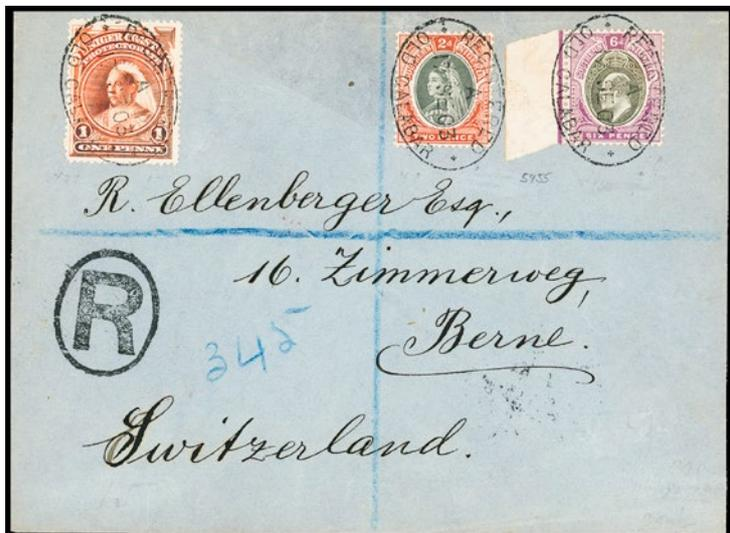 NIGER COAST
PROTECTORATE
1 1
ONE PENNY
REGISTERED
A
03
OLD CALABAR
2d
REGISTERED
A
03
OLD CALABAR
6d
SIX PENCE
REGISTERED
A
OLD CALABAR
5955
R. Ellenberger Esq.,
16. Zimmerweg,
Berne.
Switzerland.
R
345